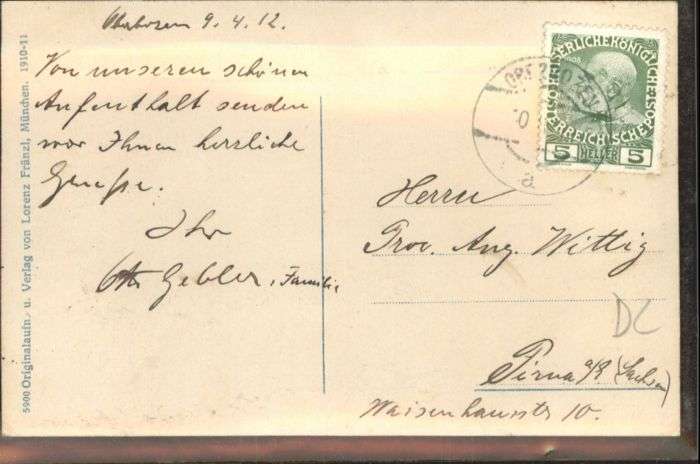 Oberbozen 9.4.12.
Von unseren schönen
Aufenthalt senden
wir Ihnen herzliche
Grüsse.
Ihr
Otto Gebler, Familie
Herrn
Aug. Wittig
Pirna a/E (Sachsen)
Waisenhausstr 10.
DZ
KAISERLICHE KÖNIGLICHE
ÖSTERREICHISCHE POST
5 HELLER 5
a
5900 Originalaufn. u. Verlag von Lorenz Fränzl, München. 1910-11